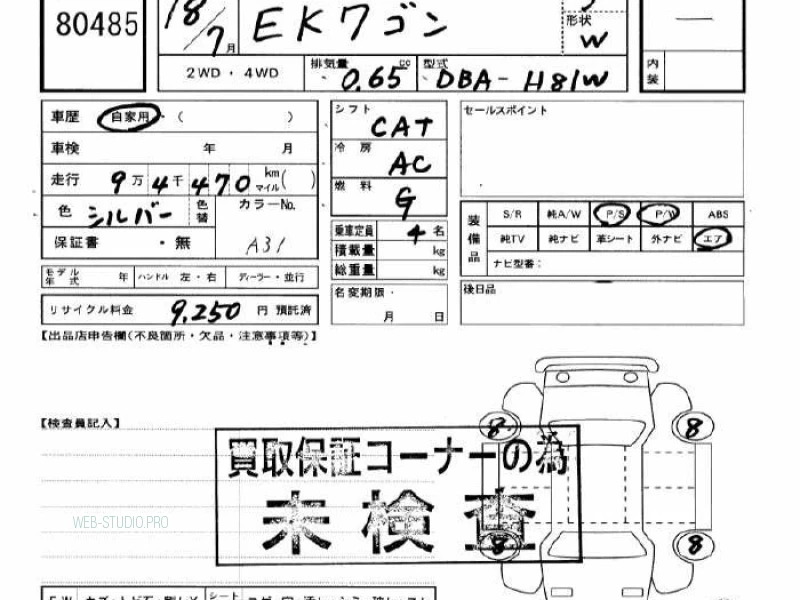 80485 18/7月 EKワゴン 形状 W —
2WD・4WD 排気量 0.65 cc 型式 DBA-H81W 内装
車歴 自家用・( )
車検 年 月
走行 9万4千470 km マイル( )
色 シルバー 色替 カラーNo. A31
保証書 ・無
モデル年式 年 ハンドル 左・右 ディーラー・並行
リサイクル料金 9,250 円 預託済
シフト CAT
冷房 AC
燃料 G
乗車定員 4名
積載量 kg
総重量 kg
名変期限・
月 日
セールスポイント
装備品 S/R 純A/W P/S P/W ABS
純TV 純ナビ 革シート 外ナビ エア
ナビ型番:
後日品
【出品店申告欄(不良箇所・欠品・注意事項等)】
【検査員記入】
8 8
買取保証コーナーの為
未検査
8 8
WEB-STUDIO.PRO